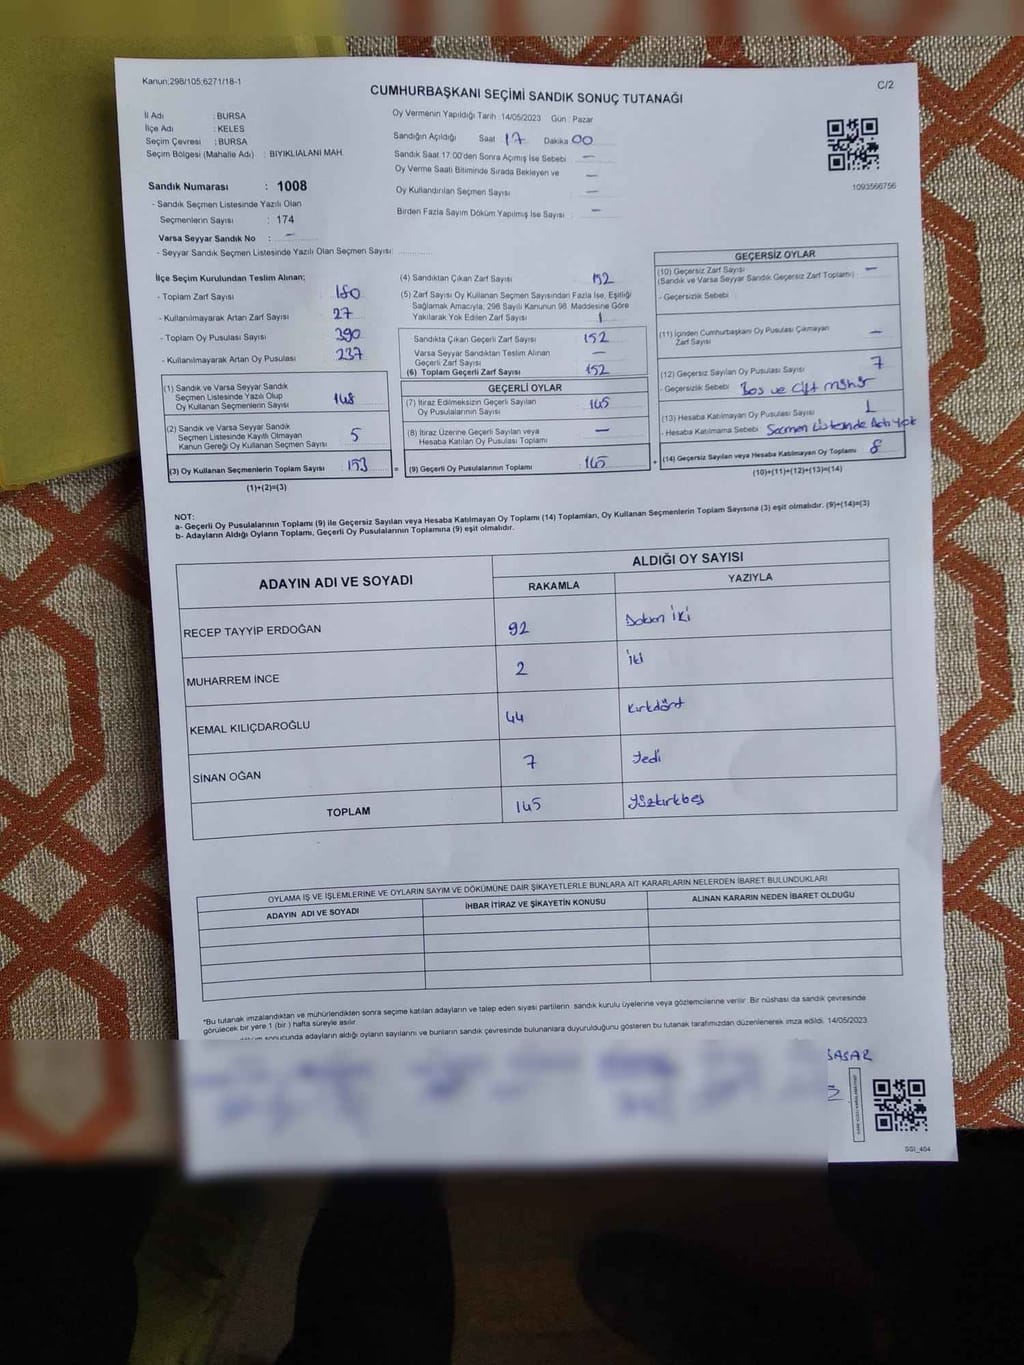 Kanun;298/105;6271/18-1
C/2
CUMHURBAŞKANI SEÇİMİ SANDIK SONUÇ TUTANAĞI
İl Adı : BURSA
İlçe Adı : KELES
Seçim Çevresi : BURSA
Seçim Bölgesi (Mahalle Adı) : BIYIKLIALANI MAH.
Oy Vermenin Yapıldığı Tarih :14/05/2023 Gün : Pazar
Sandığın Açıldığı Saat 17 Dakika 00
Sandık Saat 17:00'den Sonra Açımış İse Sebebi —
Oy Verme Saati Bitiminde Sırada Bekleyen ve
Oy Kullandırılan Seçmen Sayısı —
Birden Fazla Sayım Döküm Yapılmış İse Sayısı : —
1093566756
Sandık Numarası : 1008
- Sandık Seçmen Listesinde Yazılı Olan
Seçmenlerin Sayısı : 174
Varsa Seyyar Sandık No : —
- Seyyar Sandık Seçmen Listesinde Yazılı Olan Seçmen Sayısı:
İlçe Seçim Kurulundan Teslim Alınan;
- Toplam Zarf Sayısı 180
- Kullanılmayarak Artan Zarf Sayısı 27
- Toplam Oy Pusulası Sayısı 390
- Kullanılmayarak Artan Oy Pusulası 237
(1) Sandık ve Varsa Seyyar Sandık
Seçmen Listesinde Yazılı Olup
Oy Kullanan Seçmenlerin Sayısı 148
(2) Sandık ve Varsa Seyyar Sandık
Seçmen Listesinde Kayıtlı Olmayan
Kanun Gereği Oy Kullanan Seçmen Sayısı 5
(3) Oy Kullanan Seçmenlerin Toplam Sayısı : 153 =
(1)+(2)=(3)
(4) Sandıktan Çıkan Zarf Sayısı 152
(5) Zarf Sayısı Oy Kullanan Seçmen Sayısından Fazla İse, Eşitliği
Sağlamak Amacıyla; 298 Sayılı Kanunun 98. Maddesine Göre
Yakılarak Yok Edilen Zarf Sayısı 1
Sandıkta Çıkan Geçerli Zarf Sayısı 152
Varsa Seyyar Sandıktan Teslim Alınan
Geçerli Zarf Sayısı —
(6) Toplam Geçerli Zarf Sayısı 152
GEÇERLİ OYLAR
(7) İtiraz Edilmeksizin Geçerli Sayılan
Oy Pusulalarının Sayısı 145
(8) İtiraz Üzerine Geçerli Sayılan veya
Hesaba Katılan Oy Pusulası Toplamı —
(9) Geçerli Oy Pusulalarının Toplamı : 145 +
GEÇERSİZ OYLAR
(10) Geçersiz Zarf Sayısı —
(Sandık ve Varsa Seyyar Sandık Geçersiz Zarf Toplamı)
- Geçersizlik Sebebi
(11) İçinden Cumhurbaşkanı Oy Pusulası Çıkmayan
Zarf Sayısı —
(12) Geçersiz Sayılan Oy Pusulası Sayısı 7
- Geçersizlik Sebebi Boş ve Çift mühür
(13) Hesaba Katılmayan Oy Pusulası Sayısı 1
- Hesaba Katılmama Sebebi Seçmen Listesinde Adı yok
(14) Geçersiz Sayılan veya Hesaba Katılmayan Oy Toplamı 8
(10)+(11)+(12)+(13)=(14)
NOT:
a- Geçerli Oy Pusulalarının Toplamı (9) ile Geçersiz Sayılan veya Hesaba Katılmayan Oy Toplamı (14) Toplamları, Oy Kullanan Seçmenlerin Toplam Sayısına (3) eşit olmalıdır. (9)+(14)=(3)
b- Adayların Aldığı Oyların Toplamı, Geçerli Oy Pusulalarının Toplamına (9) eşit olmalıdır.
ADAYIN ADI VE SOYADI ALDIĞI OY SAYISI
RAKAMLA YAZIYLA
RECEP TAYYİP ERDOĞAN 92 Doksan iki
MUHARREM İNCE 2 iki
KEMAL KILIÇDAROĞLU 44 Kırkdört
SİNAN OĞAN 7 Yedi
TOPLAM 145 Yüzkırkbeş
OYLAMA İŞ VE İŞLEMLERİNE VE OYLARIN SAYIM VE DÖKÜMÜNE DAİR ŞİKAYETLERLE BUNLARA AİT KARARLARIN NELERDEN İBARET BULUNDUKLARI
ADAYIN ADI VE SOYADI İHBAR İTİRAZ VE ŞİKAYETİN KONUSU ALINAN KARARIN NEDEN İBARET OLDUĞU
*Bu tutanak imzalandıktan ve mühürlendikten sonra seçime katılan adayların ve talep eden siyasi partilerin sandık kurulu üyelerine veya gözlemcilerine verilir. Bir nüshası da sandık çevresinde
görülecek bir yere 1 (bir ) hafta süreyle asılır.
sonucunda adayların aldığı oyların sayılarını ve bunların sandık çevresinde bulunanlara duyurulduğunu gösteren bu tutanak tarafımızdan düzenlenerek imza edildi. 14/05/2023
SSI_404